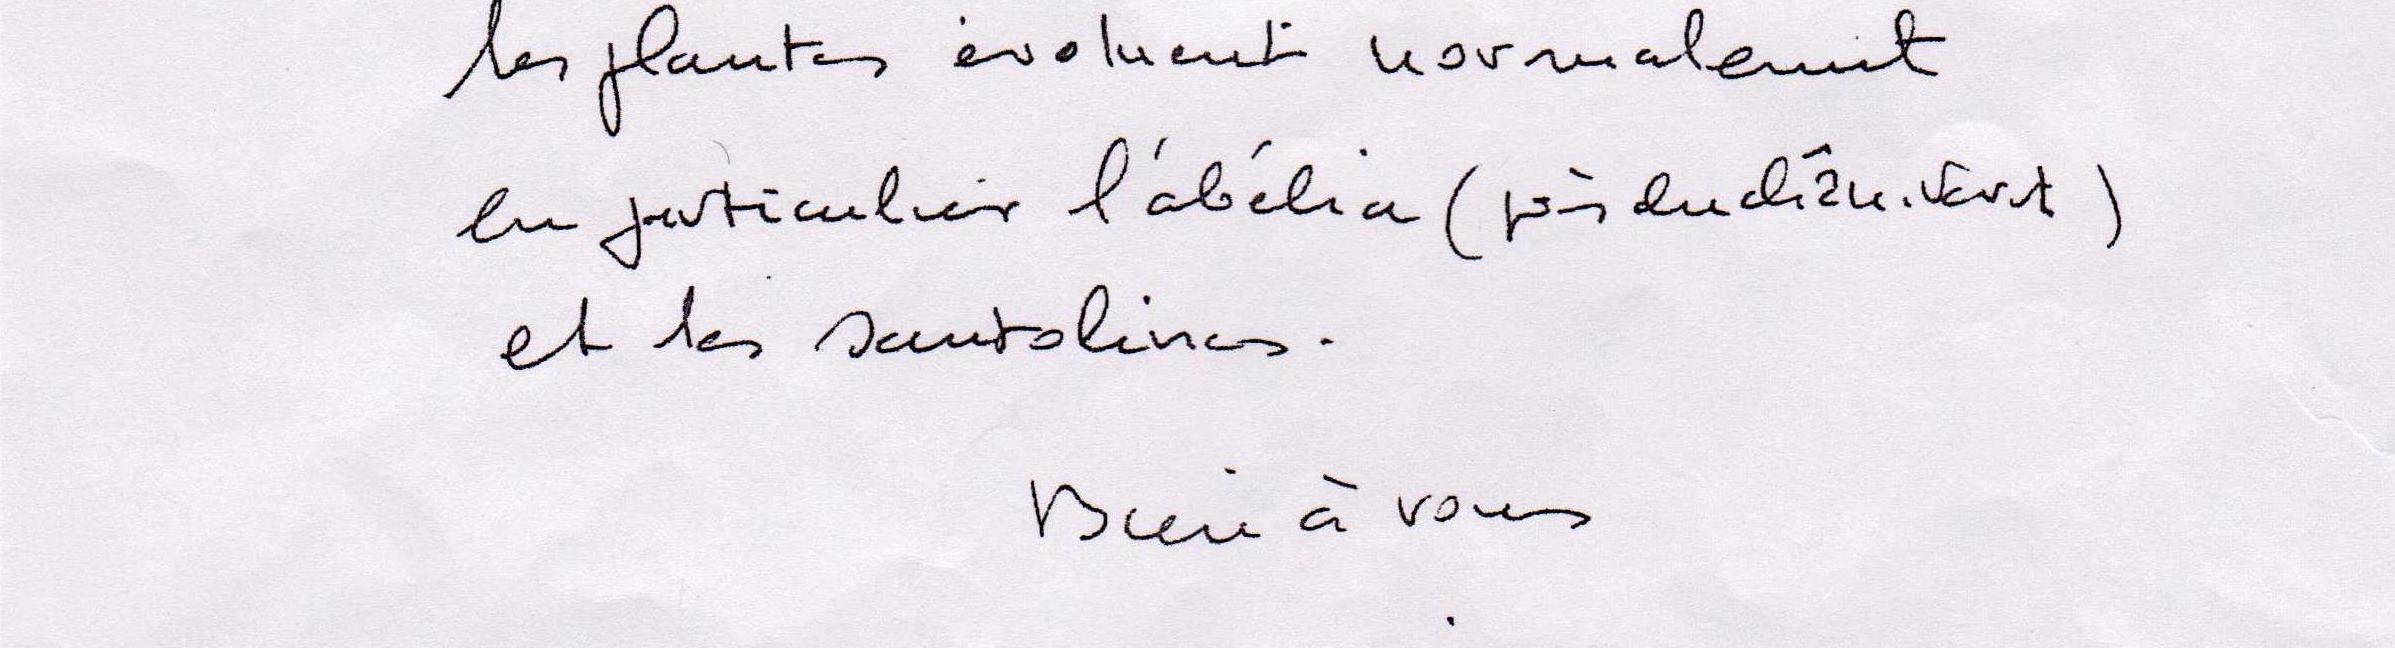 les plantes évoluent normalement
en particulier l'abélia (près du chêne vert)
et les santolines.
Bien à vous